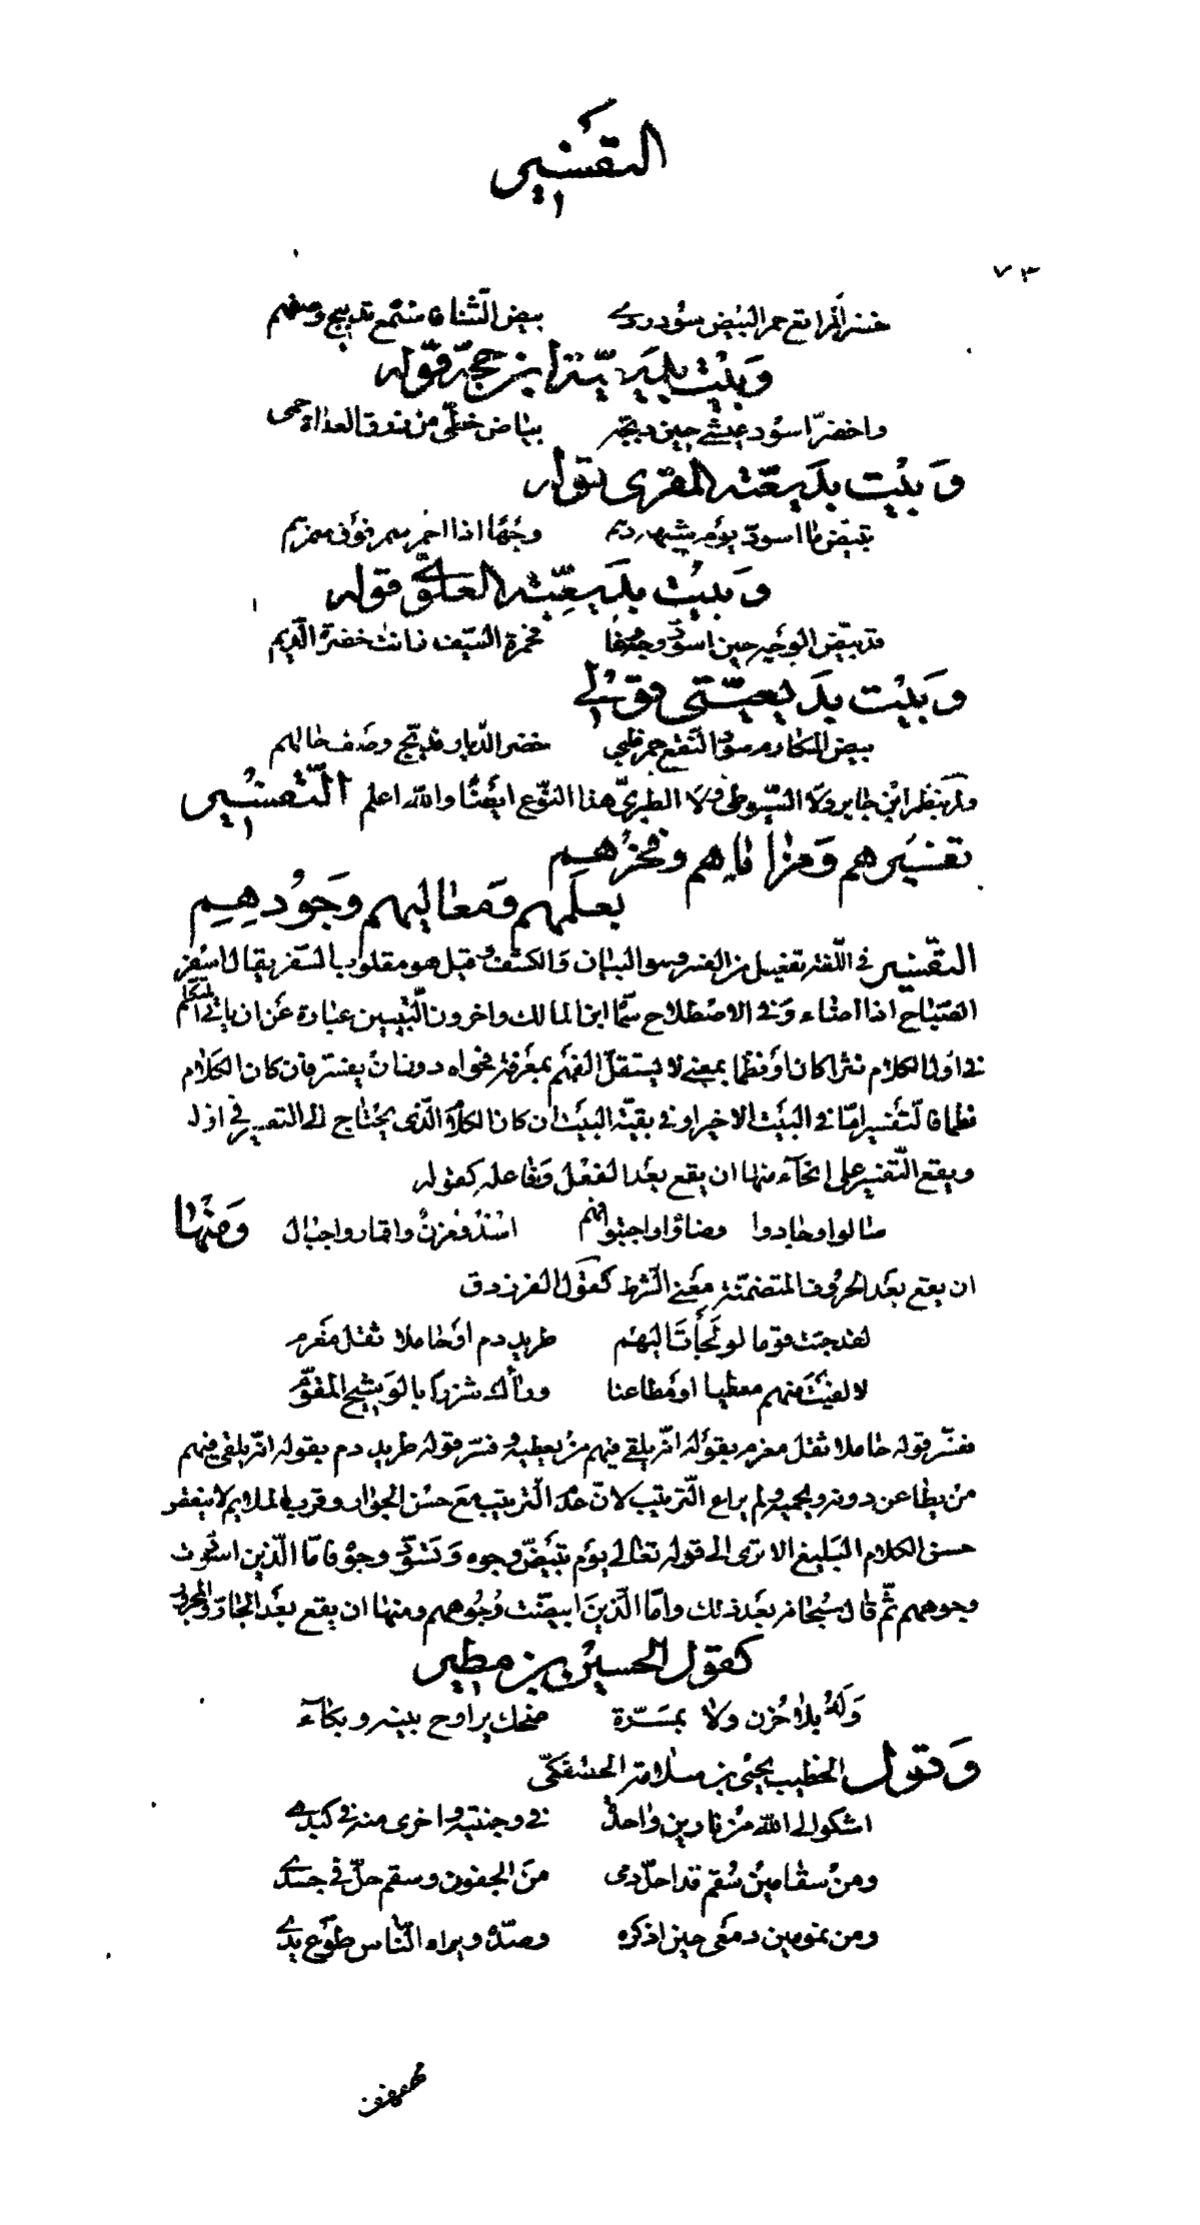 التفسير
٧٣
خضر المرابع حمر البيض سود ردى بيض الثنا فاستمع تدبيج وصفهم
وبيت بديعية ابن حجة قوله
واخضر اسود عيشى حين دبجه بياض حظى من زرق العداة حمى
وبيت بديعية المقرى قوله
تبيض ما اسود يوم وجها اذا احمر سمر فوق
وبيت بديعية العلوى قوله
قد بيض الوجه حين اسود وجه محمرة السيف خضرة
وبيت بديعيتى قولى
بيض المكارم سود النقع حمر ظبى خضر الديار فدبج وصف حالهم
ولم ينظم ابن جابر ولا السيوطى ولا الطبرى هذا النوع ايضا والله اعلم التفسير
تفسيرهم وفخرهم
بعلمهم ومعاليهم وجودهم
التفسير فى اللغة تفعيل من الفسر وهو البيان والكشف وقيل هو مقلوب السفر يقال اسفر
الصباح اذا اضاء وفى الاصطلاح سماه ابن مالك واخرون التبيين عبارة عن ان ياتى المتكلم
فى اول الكلام نثرا كان او نظما بمعنى لا يستقل الفهم بمعرفة فحواه دون ان يفسر فان كان الكلام
نظما فالتفسير اما فى البيت الاخير او فى بقية البيت ان كان الكلام الذى يحتاج الى التفسير فى اوله
ويقع التفسير على انحاء منها ان يقع بعد الفعل وفاعله كقوله
صالوا وجادوا وضاؤا واحتبوا فهم اسد ومزن واقمار واجبال ومنها
ان يقع بعد الحروف المتضمنة معنى الشرط كقول الفرزدق
لقد جئت قوما لو لجأت اليهم طريد دم او حاملا ثقل مغرم
لالفيت منهم معطيا او مطاعنا وراءك شزرا بالوشيج المقوم
ففسر قوله حاملا ثقل مغرم بقوله انه يلقى فيهم من يعطيه وفسر قوله طريد دم بقوله انه يلقى فيهم
من يطاعن دونه ويحميه ولم يراع الترتيب لان عدم الترتيب مع حسن الجوار وقرب الملايم لا ينقص
حسن الكلام البليغ الا ترى الى قوله تعالى يوم تبيض وجوه وتسود وجوه فاما الذين اسودت
وجوههم ثم قال سبحانه بعد ذلك واما الذين ابيضت وجوههم ومنها ان يقع بعد الجار والمجرور
كقول الحسين بن مطير
وله بلا حزن ولا بمسرة ضحك يراوح بينه وبكاء
وقول الخطيب يحيى بن سلامة الحصفكى
اشكو الى الله من نارين واحدة فى وجنتيه واخرى منه فى كبدى
ومن سقامين سقم قد احل دمى من الجفون وسقم حل فى جسدى
ومن نمومين دمعى حين اذكره وصده ويراه الناس طوع يدى